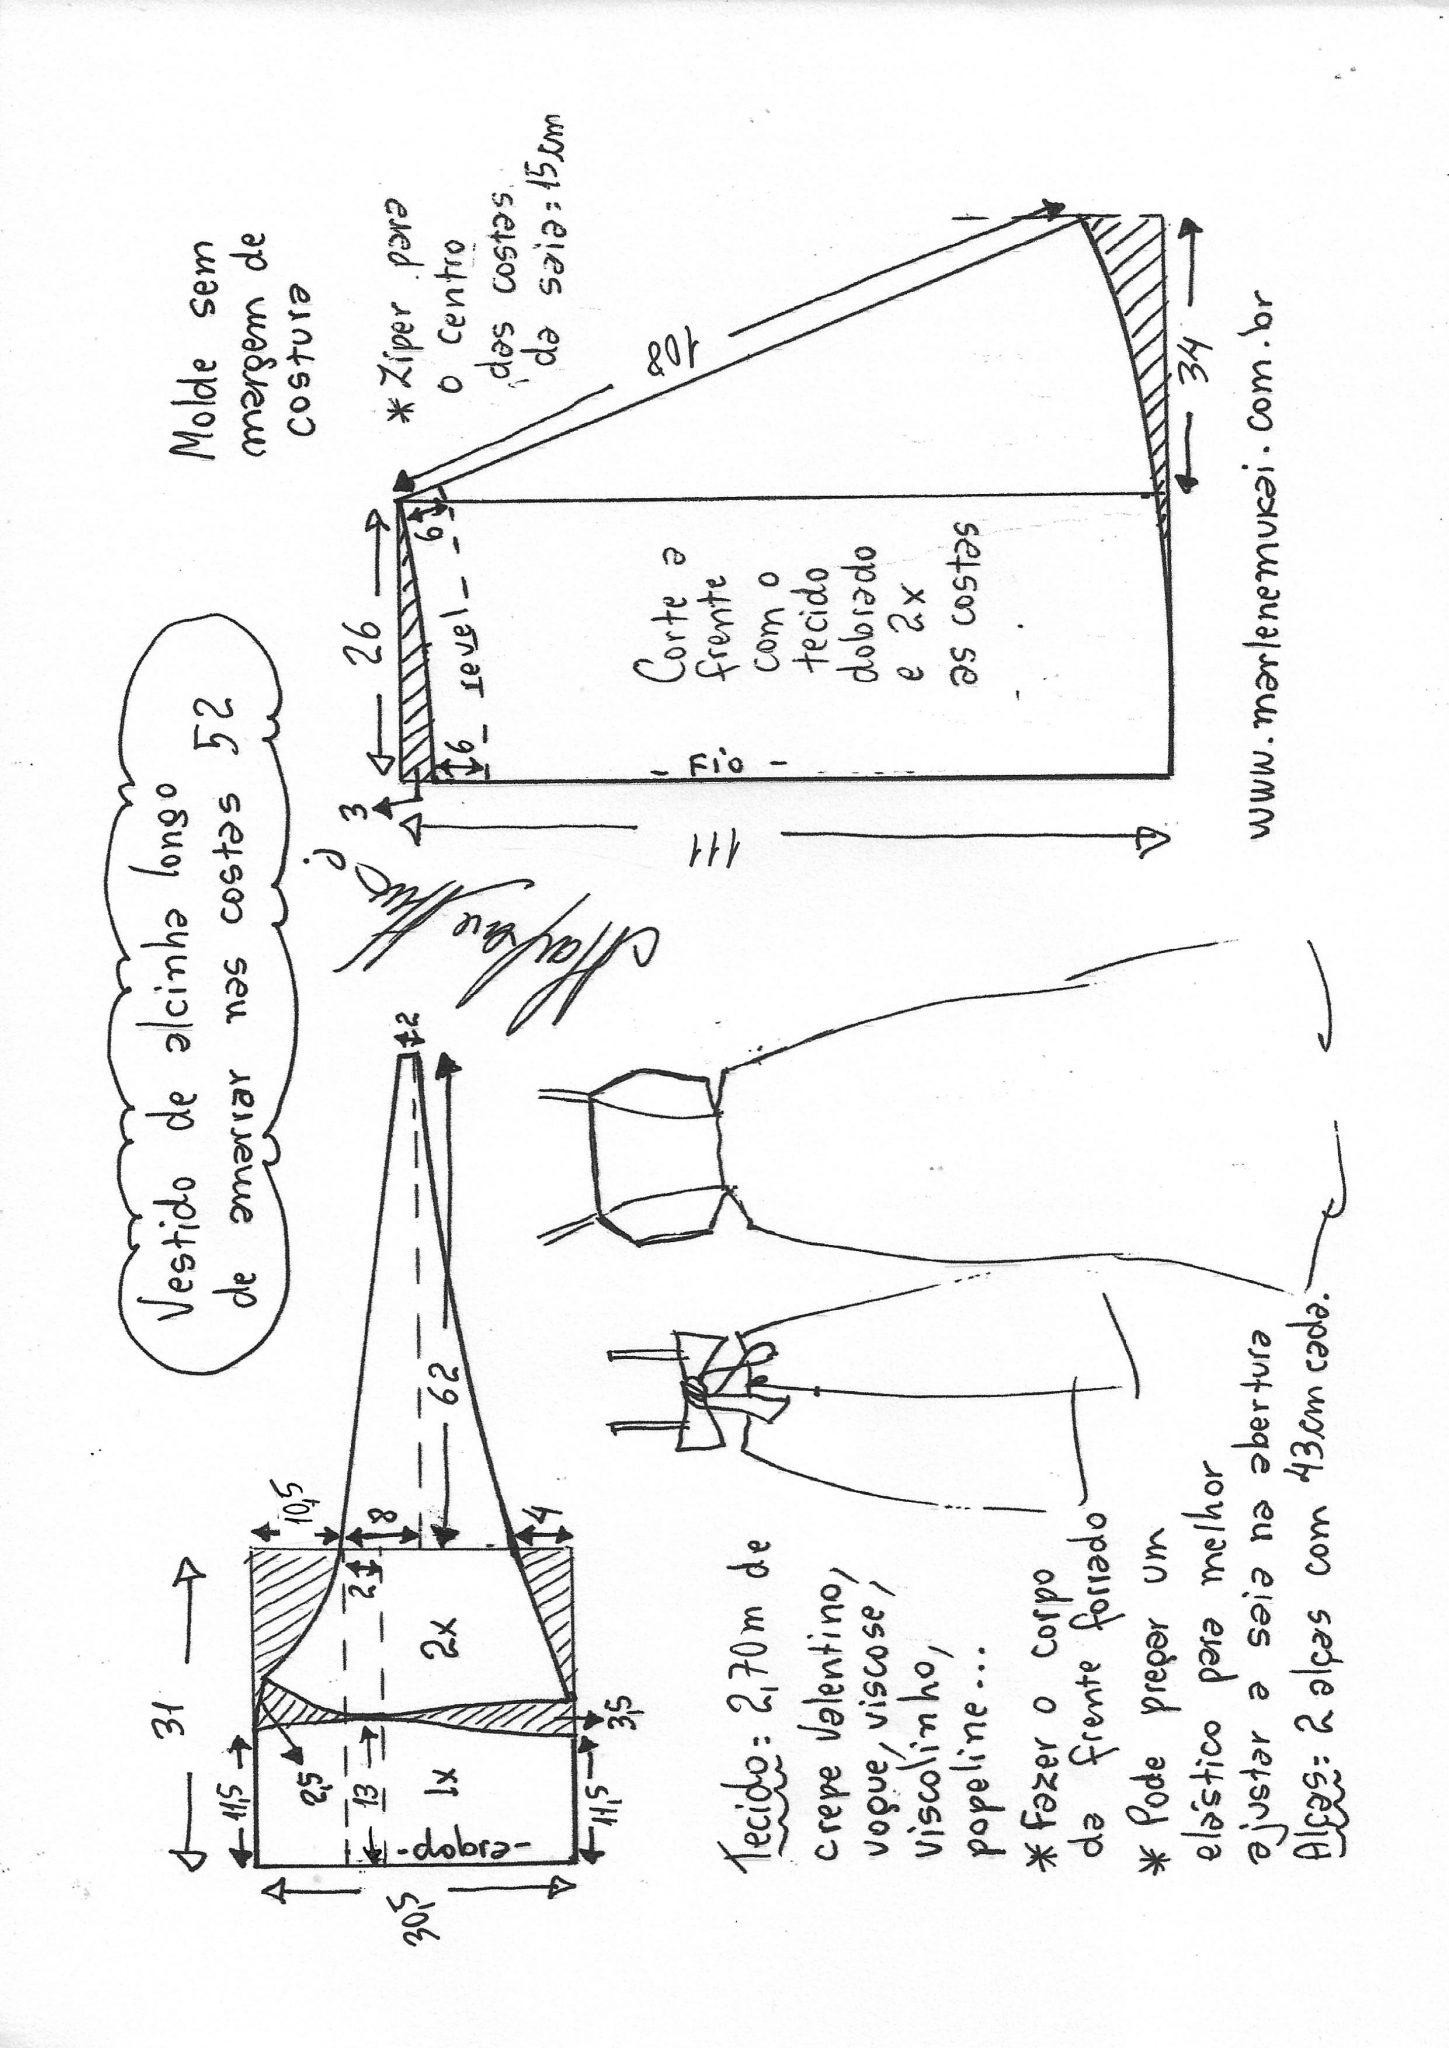 Vestido de alcinha longo
de amarrar nas costas 52
Molde sem
margem de
costura
31
11,5
10,5
2,5
13
2
8
2
1x
2x
62
4
3,5
11,5
30,5
-dobra-
* Zíper para
o centro
das costas
da saia = 15cm
3
26
6
6
- revel -
108
- Fio -
111
Corte a
frente
com o
tecido
dobrado
e 2x
as costas
34
Tecido: 2,70m de
crepe Valentino,
vogue, viscose,
viscolinho,
popeline...
* Fazer o corpo
da frente forrado
* Pode pregar um
elástico para melhor
ajustar a saia na abertura
Alças: 2 alças com 43cm cada.
www.marlenemukai.com.br